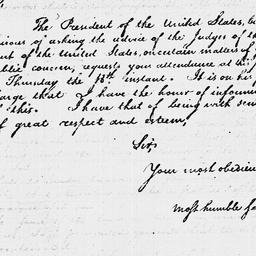 The President of the United States, be
sirous of asking the advice of the Judges of th
rt of the United States, on certain matters of
blic concern, requests your attendance at this
Thursday the 18th instant. It is on his
arge that I have the honor of informin
f this. I have that of being with sen
of great respect and esteem,
Sir,
Your most obedien
most humble se